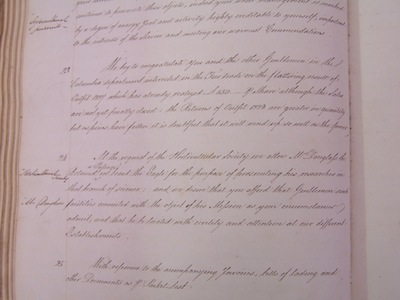 continue to promote their objects, indeed your whole management is marked
by a degree of energy zeal and activity highly creditable to yourself, important
to the interests of the Concern and meriting our warmest Commendations.
23 We beg to congratulate You and the other Gentlemen in the
Columbia department interested in the Fur trade on the flattering result of
Outfit which has already realized £ although the Sales
are not yet finally closed: the Returns of Outfit are greater in quantity
but as prices have fallen it is doubtful that it will wind up so well as the former
Horticultural Society
Mr Douglas
24 At the request of the Horticultural Society we allow Mr Douglas to
Return of Passage Pr the Eagle for the purpose of prosecuting his researches in
that branch of science; and we desire that you afford that Gentleman such
facilities connected with the object of his Mission as your circumstances
admit, and that he be treated with civility and attention at our different
Establishments.
25 With reference to the accompanying Invoices, bills of lading and
other Documents as Pr Packet List